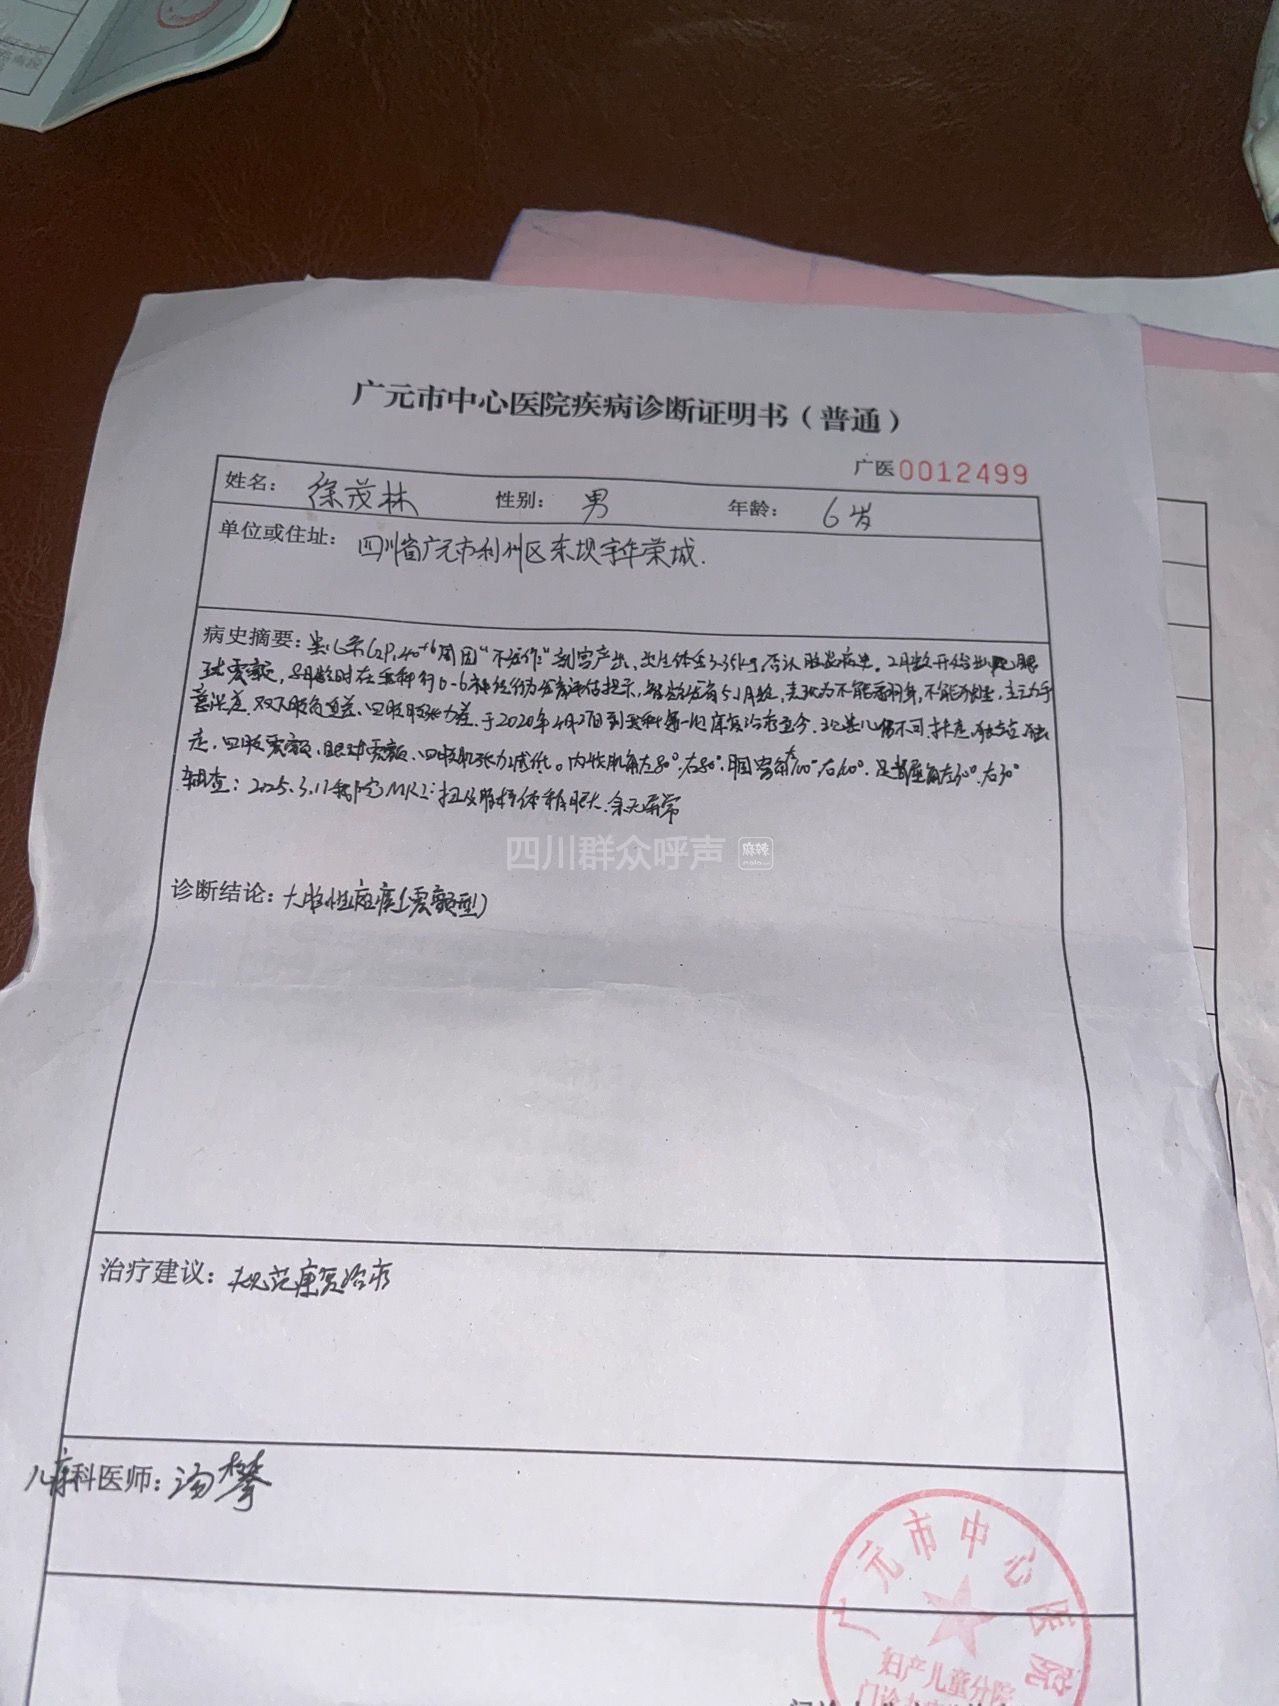 广元市中心医院疾病诊断证明书（普通）
广医0012499
姓名： 徐茂林 性别： 男 年龄： 6岁
单位或住址： 四川省广元市利州区东坝宇华荣城.
病史摘要： 患儿系G2P1 40+6周因“不发作”剖宫产出、出生体重3.35kg, 否认脑炎病史。2月龄开始出现眼
球震颤, 8月龄时在我科行0-6神经行为发育评估提示, 智龄发育5.1月龄, 表现为不能翻身, 不能独坐, 主动抓手
意识差, 双下肢负重差、四肢肌张力差. 于2020年4月27日到我科第一次康复治疗至今. 现患儿仍不可扶走, 独站, 独
走, 四肢震颤, 眼球震颤, 四肢肌张力减低。内收肌角左80°, 右80°. 腘窝角左100° 右100°. 足背屈角左30°. 右30°
辅查： 2025.3.17我院MRI: 扣及脑梗体积肥大. 余无异常
四川群众呼声 麻辣
诊断结论： 大脑性瘫痪(震颤型)
治疗建议： 规范康复治疗
儿康科医师： 汤攀
广元市中心医院
妇产儿童分院